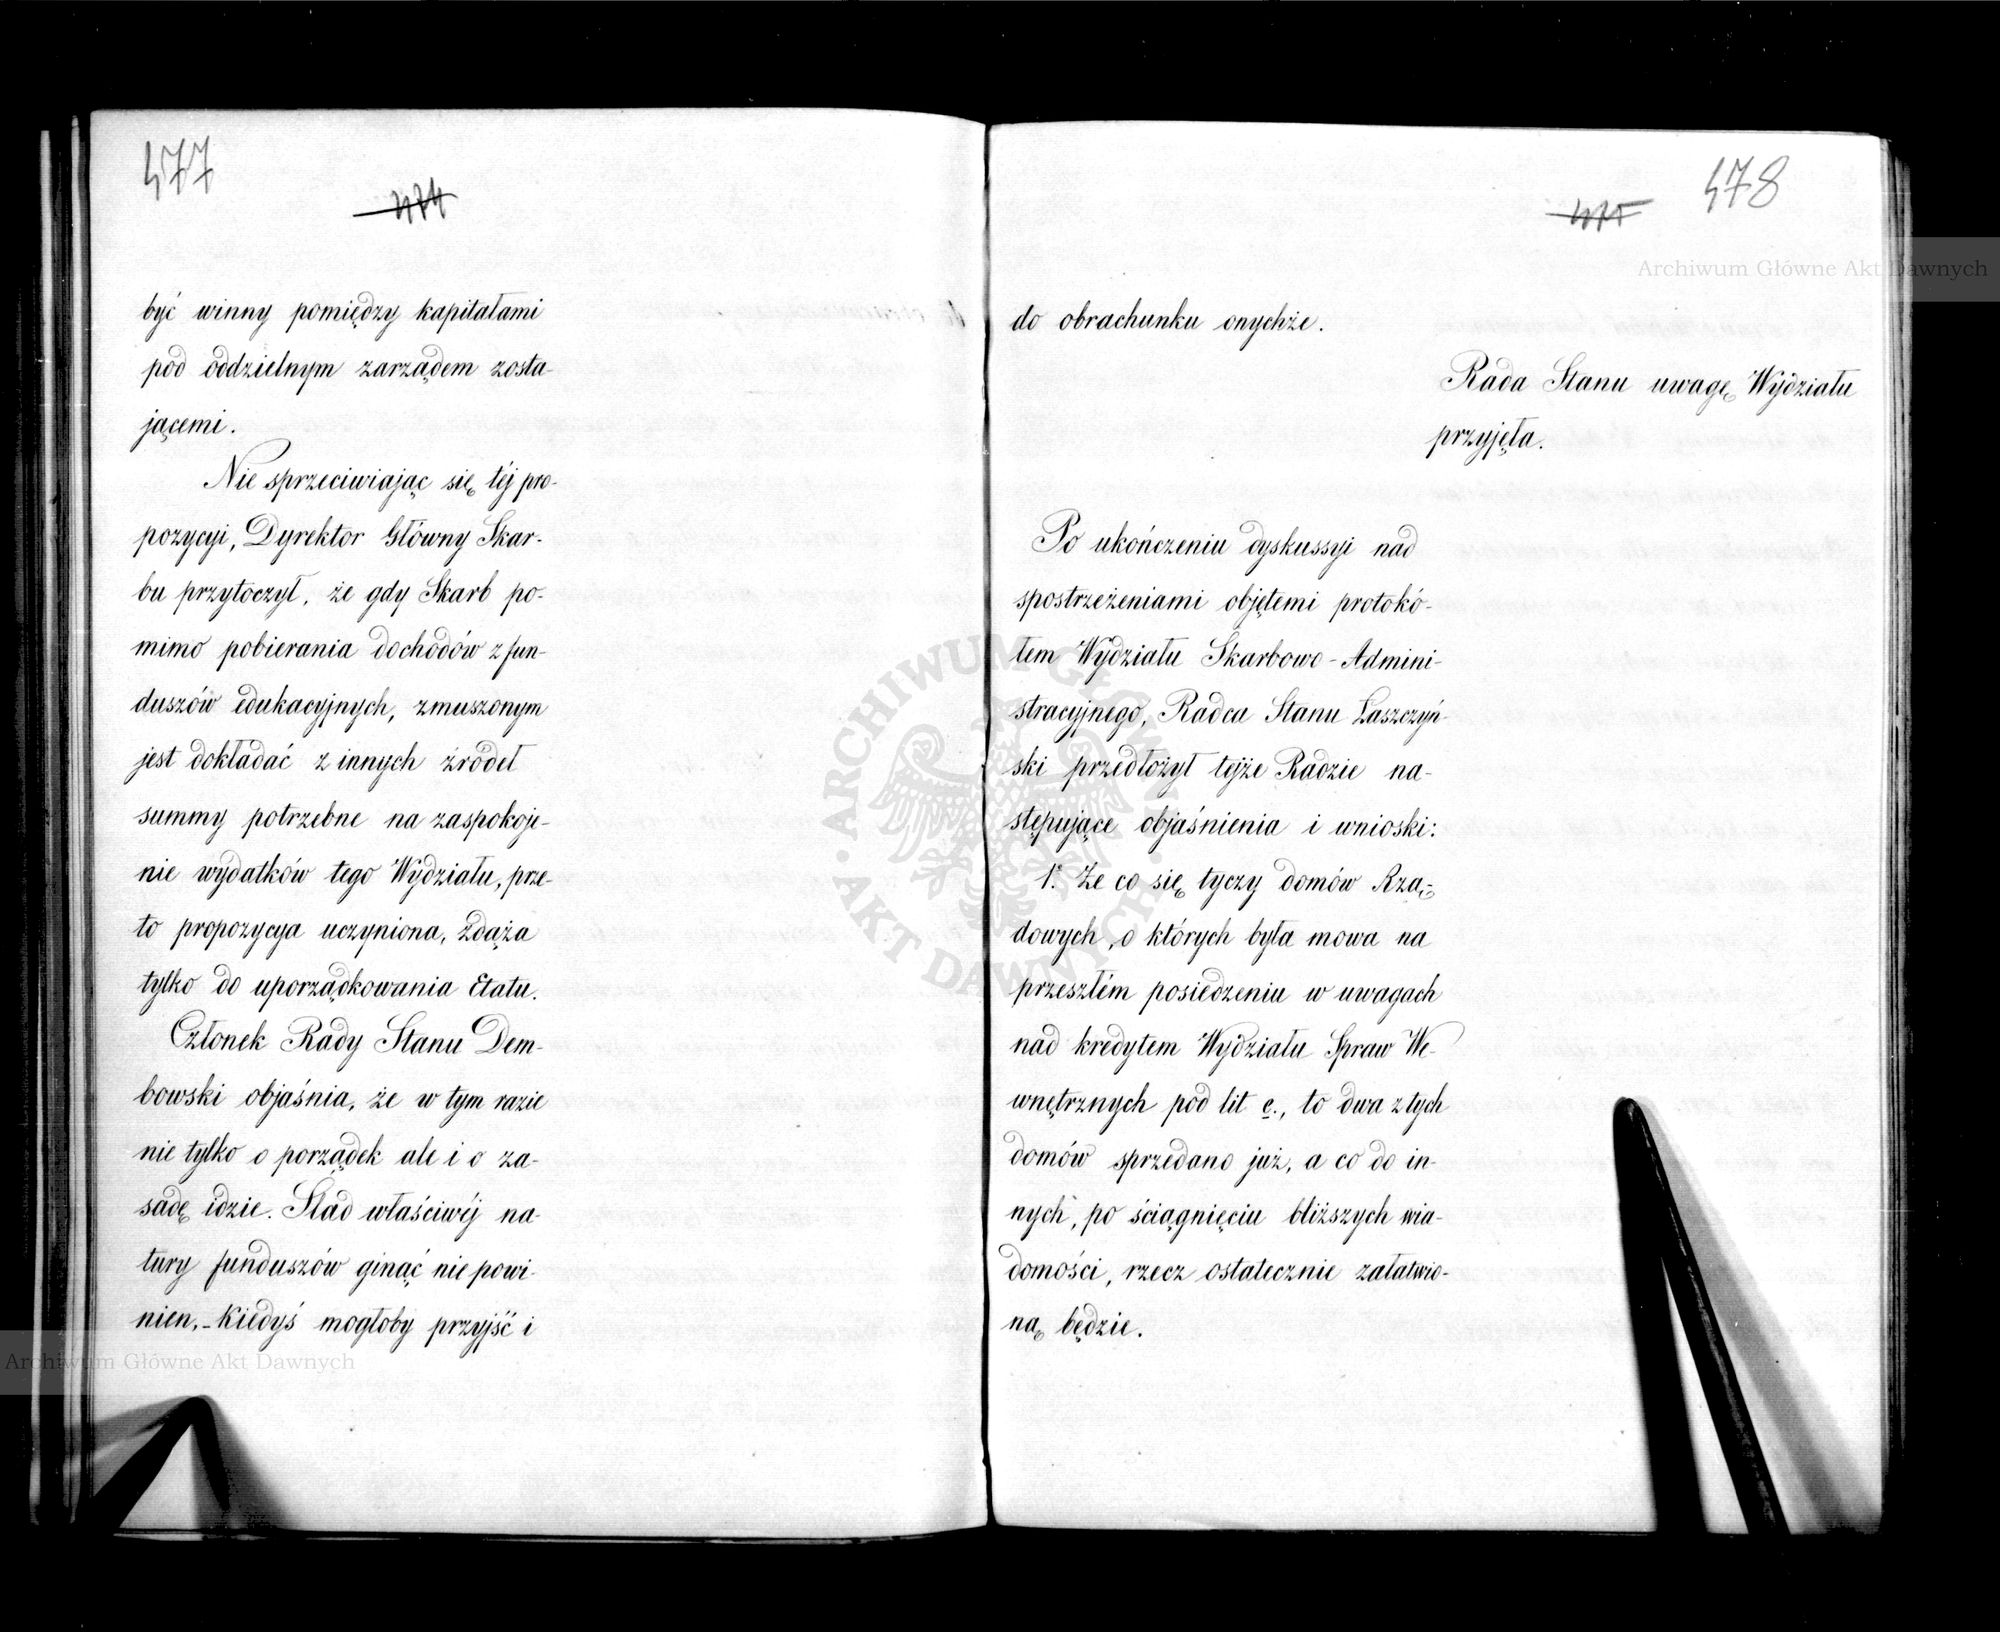 477
474
być winny pomiędzy kapitałami
pod oddzielnym zarządem zosta-
jącemi.
Nie sprzeciwiając się téj pro-
pozycyi, Dyrektor Główny Skar-
bu przytoczył, że gdy Skarb po-
mimo pobierania dochodów z fun-
duszów edukacyjnych, zmuszonym
jest dokładać z innych źródeł
summy potrzebne na zaspokoje-
nie wydatków tego Wydziału, prze-
to propozycya uczyniona, zdąża
tylko do uporządkowania Etatu.
Członek Rady Stanu Dem-
bowski objaśnia, że w tym razie
nie tylko o porządek ale i o za-
sadę idzie. Ślad właściwéj na-
tury funduszów ginąć nie powi-
nien,- Kiedyś mogłoby przyjść i
478
475
do obrachunku onychże.
Rada Stanu uwagę Wydziału
przyjęła.
Po ukończeniu dyskussyi nad
spostrzeżeniami objętemi protokó-
łem Wydziału Skarbowo-Admini-
stracyjnego, Radca Stanu Łaszczyń-
ski przedłożył tejże Radzie na-
stępujące objaśnienia i wnioski:
1º. Że co się tyczy domów Rzą-
dowych, o których była mowa na
przeszłém posiedzeniu w uwagach
nad kredytem Wydziału Spraw We-
wnętrznych pod lit e., to dwa z tych
domów sprzedano już, a co do in-
nych, po ściągnięciu bliższych wia-
domości, rzecz ostatecznie załatwio-
ną będzie.
Archiwum Główne Akt Dawnych
Archiwum Główne Akt Dawnych
ARCHIWUM GŁÓWNE
AKT DAWNYCH